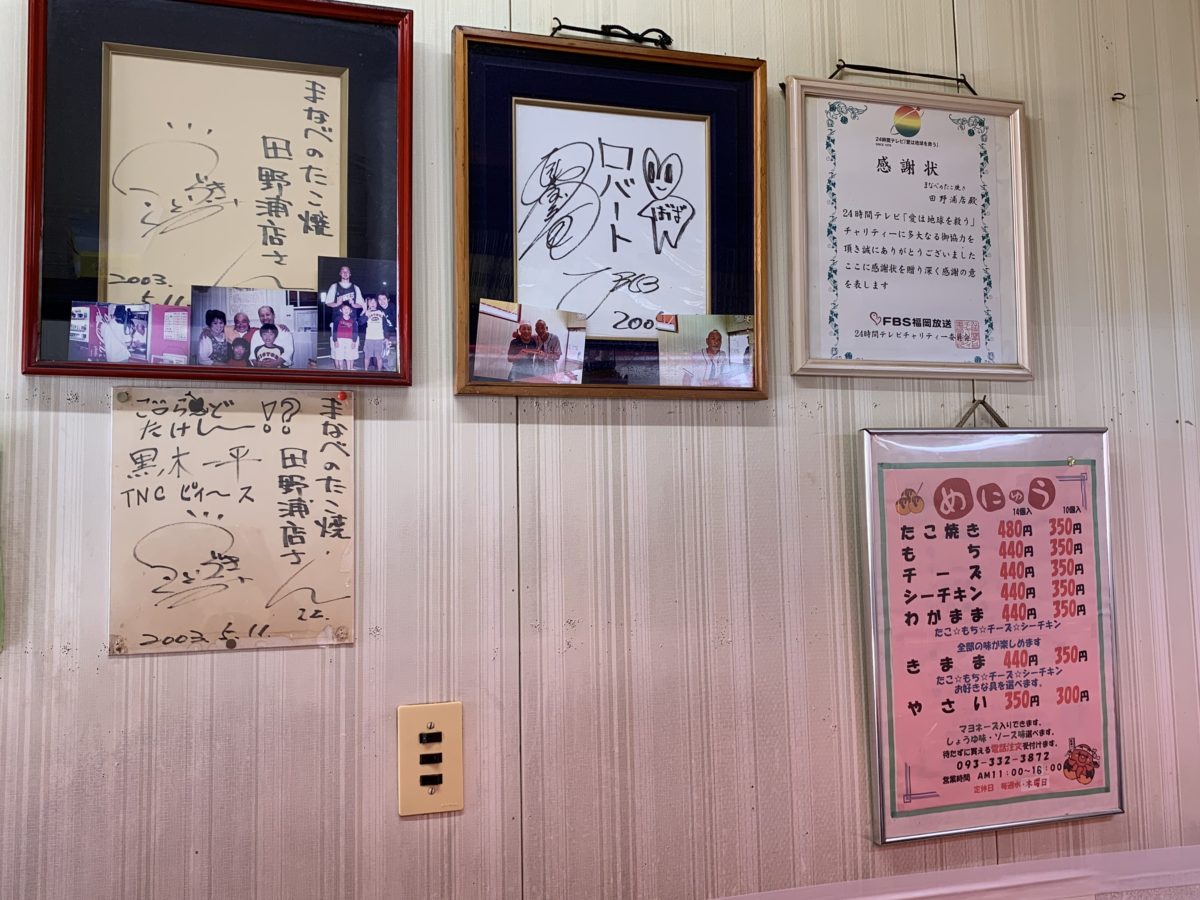 まなべのたこ焼
田野浦店さん
2003.
5.11
ロバート
おばん
200
24時間テレビ「愛は地球を救う」
感謝状
まなべのたこ焼き
田野浦店殿
24時間テレビ「愛は地球を救う」
チャリティーに多大なる御協力を
頂き誠にありがとうございました
ここに感謝状を贈り深く感謝の意
を表します
FBS福岡放送
24時間テレビチャリティー委員会
まなべのたこ焼.
田野浦店さん
22.
ごうらんど
たけしー!!?
黒木一平
TNC ピィ〜ス
2003.5.11.
めにゅう
14個入 10個入
たこ焼き 480円 350円
もち 440円 350円
チーズ 440円 350円
シーチキン 440円 350円
わがまま 440円 350円
たこ☆もち☆チーズ☆シーチキン
全部の味が楽しめます
きまま 440円 350円
たこ☆もち☆チーズ☆シーチキン
お好きな具を選べます。
やさい 350円 300円
マヨネーズ入りできます。
しょうゆ味・ソース味選べます。
待たずに買える電話注文受付けます。
093-332-3872
営業時間 AM11:00〜16:00
定休日 毎週水・木曜日